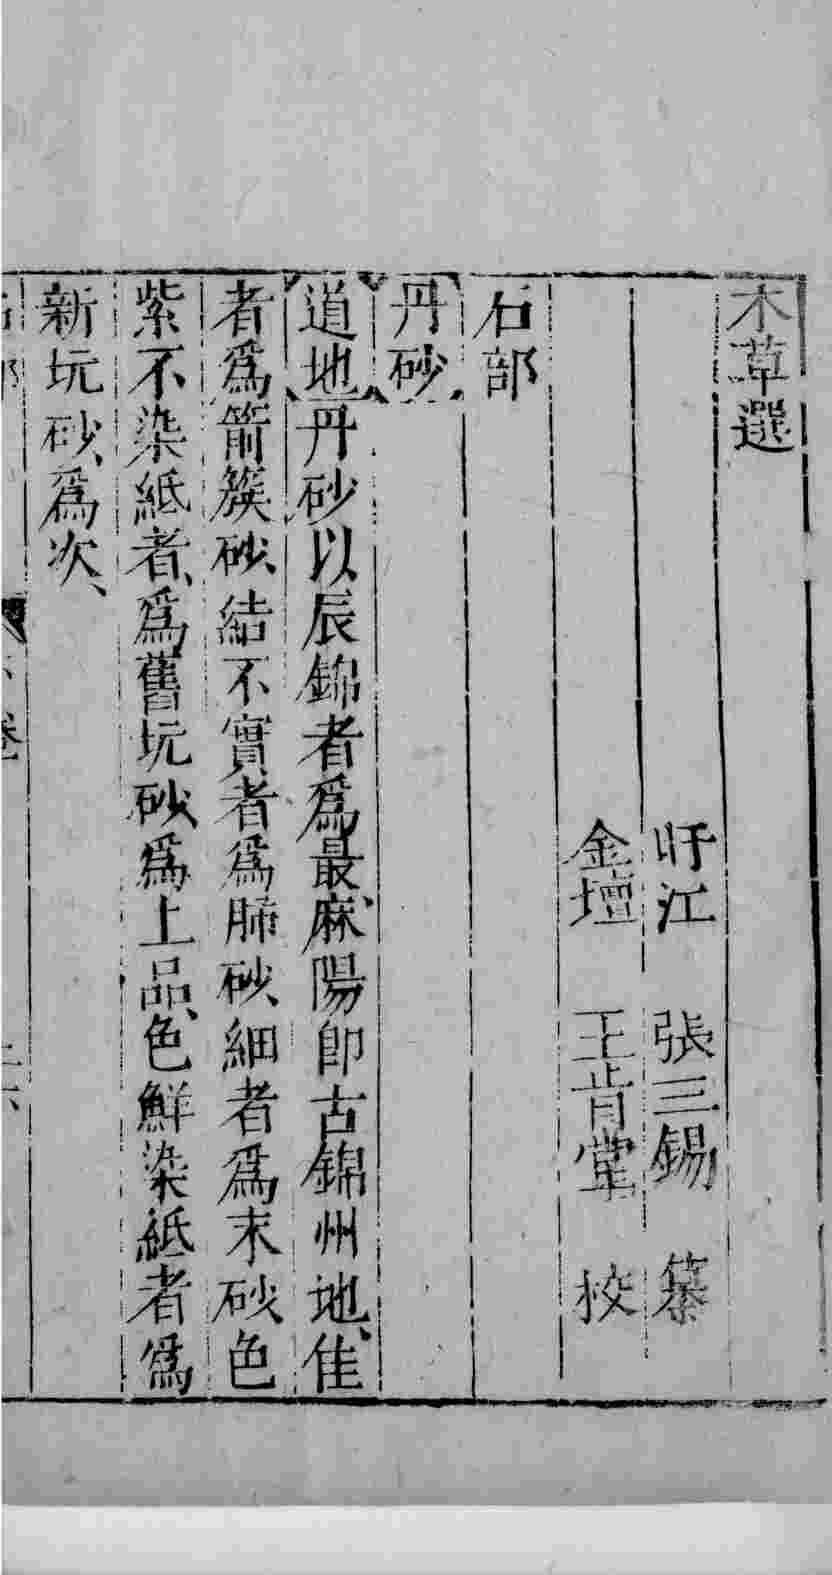 本草選
盱江 張三錫 纂
金壇 王肯堂 校
石部
丹砂
道地丹砂以辰錦者爲最、麻陽卽古錦州地、佳
者爲箭簇砂、結不實者爲肺砂、細者爲末砂色
紫不染紙者、爲舊坑砂、爲上品、色鮮染紙者爲
新坑砂、爲次、
石部